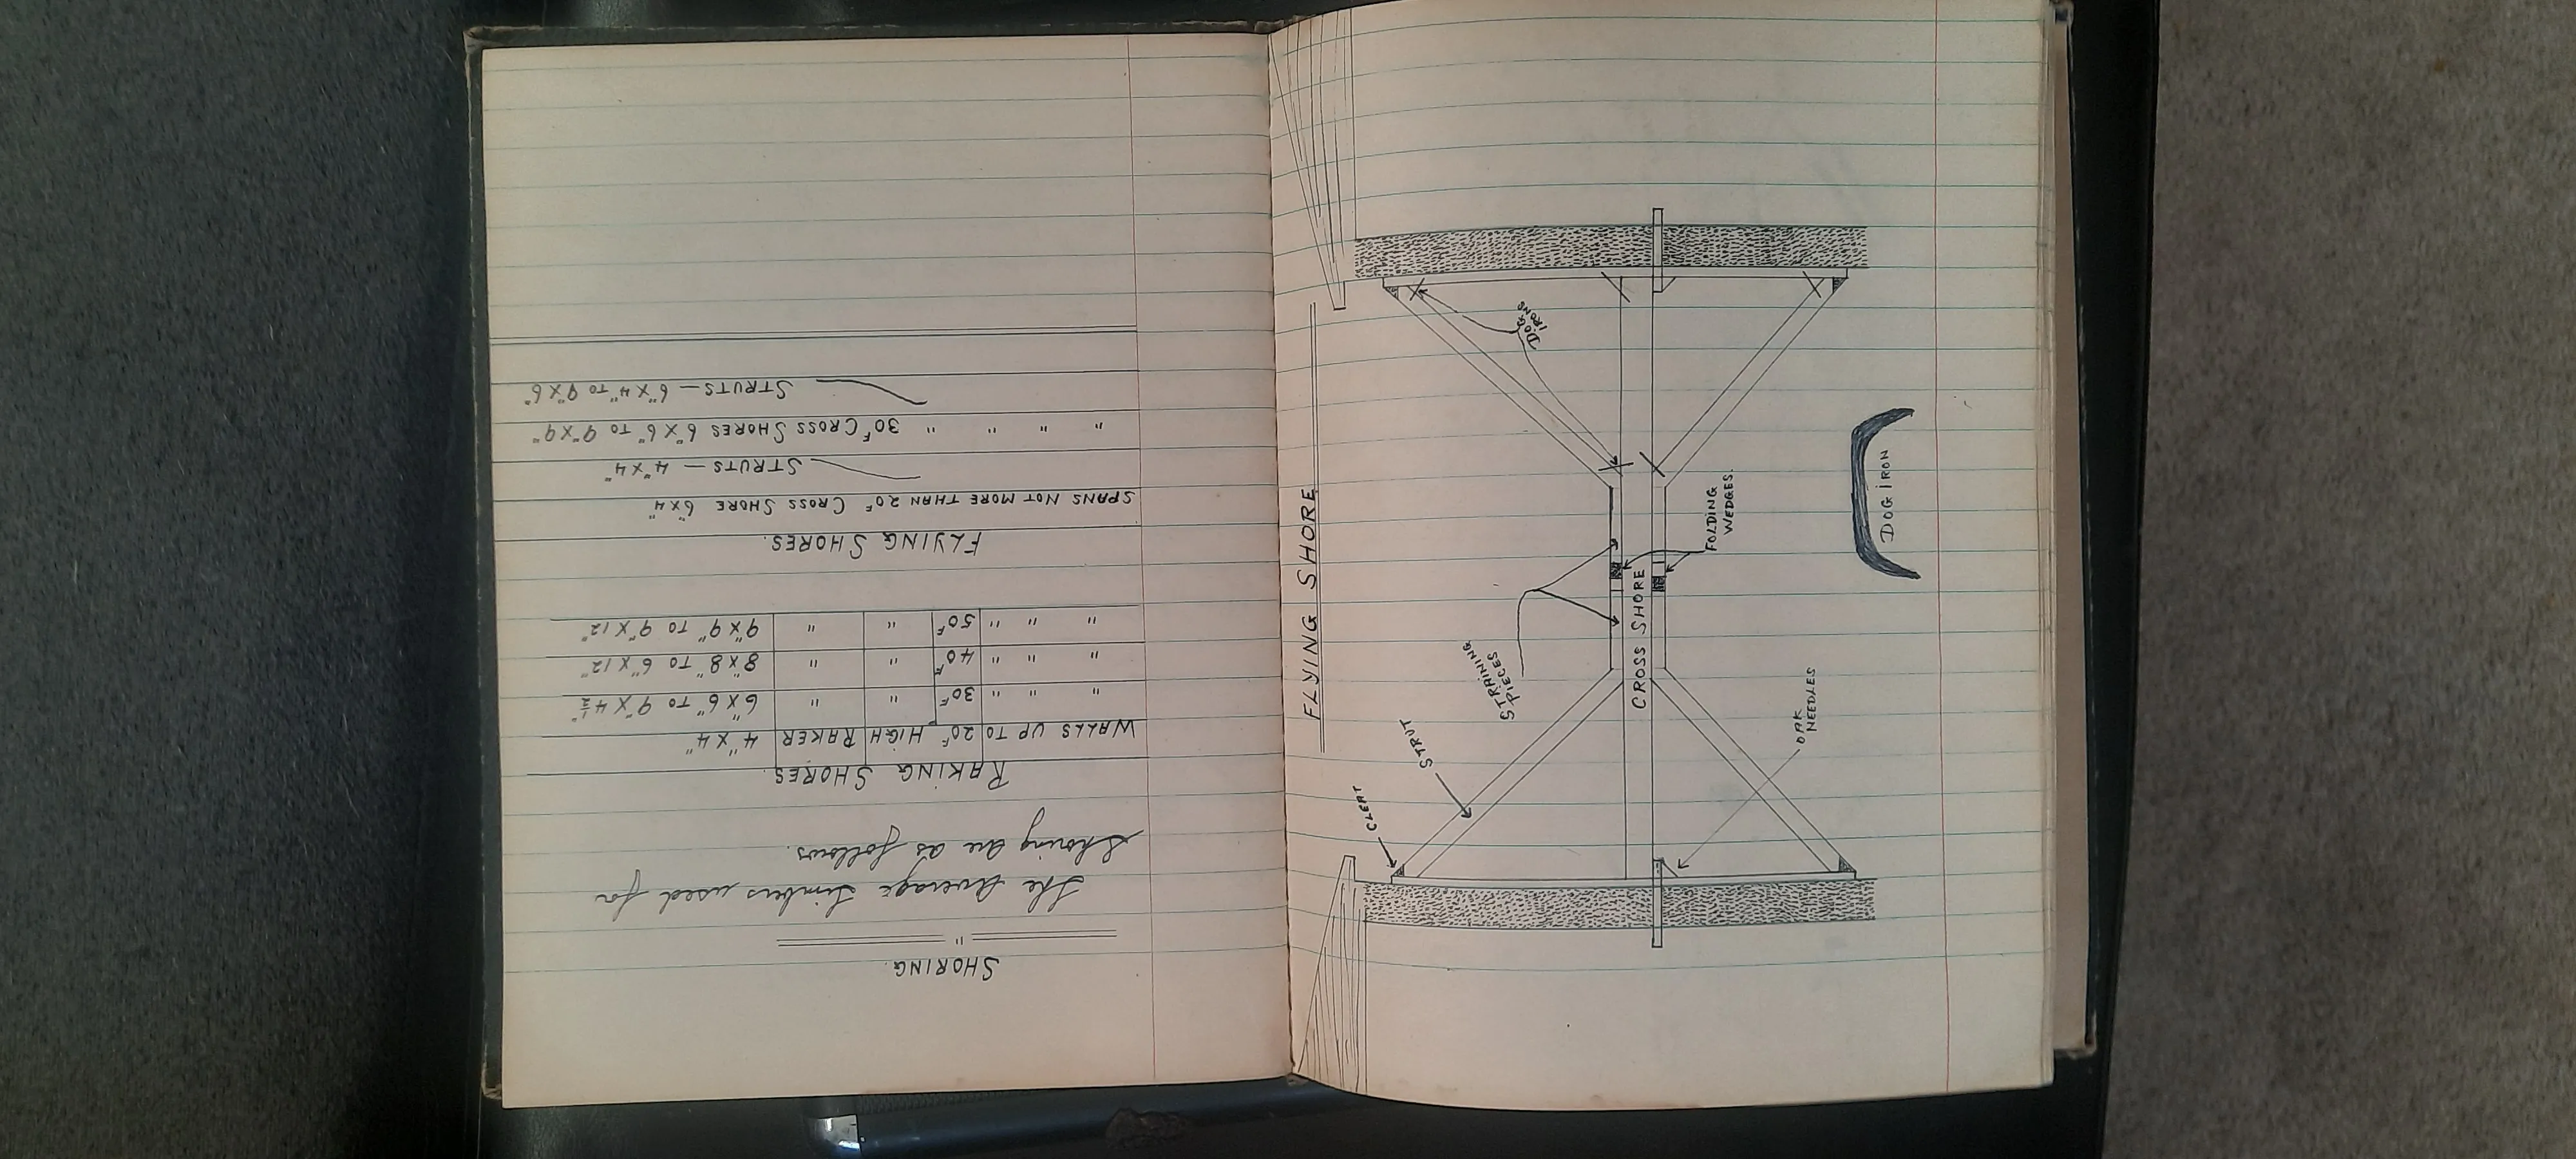 SHORING.
"
The Average timbers used for
Shoring are as follows.
RAKING SHORES.
WALLS UP TO 20F HIGH RAKER 4" X 4"
" " " 30F " " 6" X 6" TO 9" X 4½"
" " " 40F " " 8" X 8" TO 6" X 12"
" " " 50F " " 9" X 9" TO 9" X 12"
FLYING SHORES.
SPANS NOT MORE THAN 20F CROSS SHORE 6"X4"
STRUTS — 4"X4"
" " " " 30F CROSS SHORES 6"X6" TO 9"X9"
STRUTS — 6"X4" TO 9"X6"
FLYING SHORE
CLEAT
STRUT
STRAINING
PIECES
DOG
IRONS
CROSS SHORE
FOLDING
WEDGES.
OAK
NEEDLES
DOG IRON